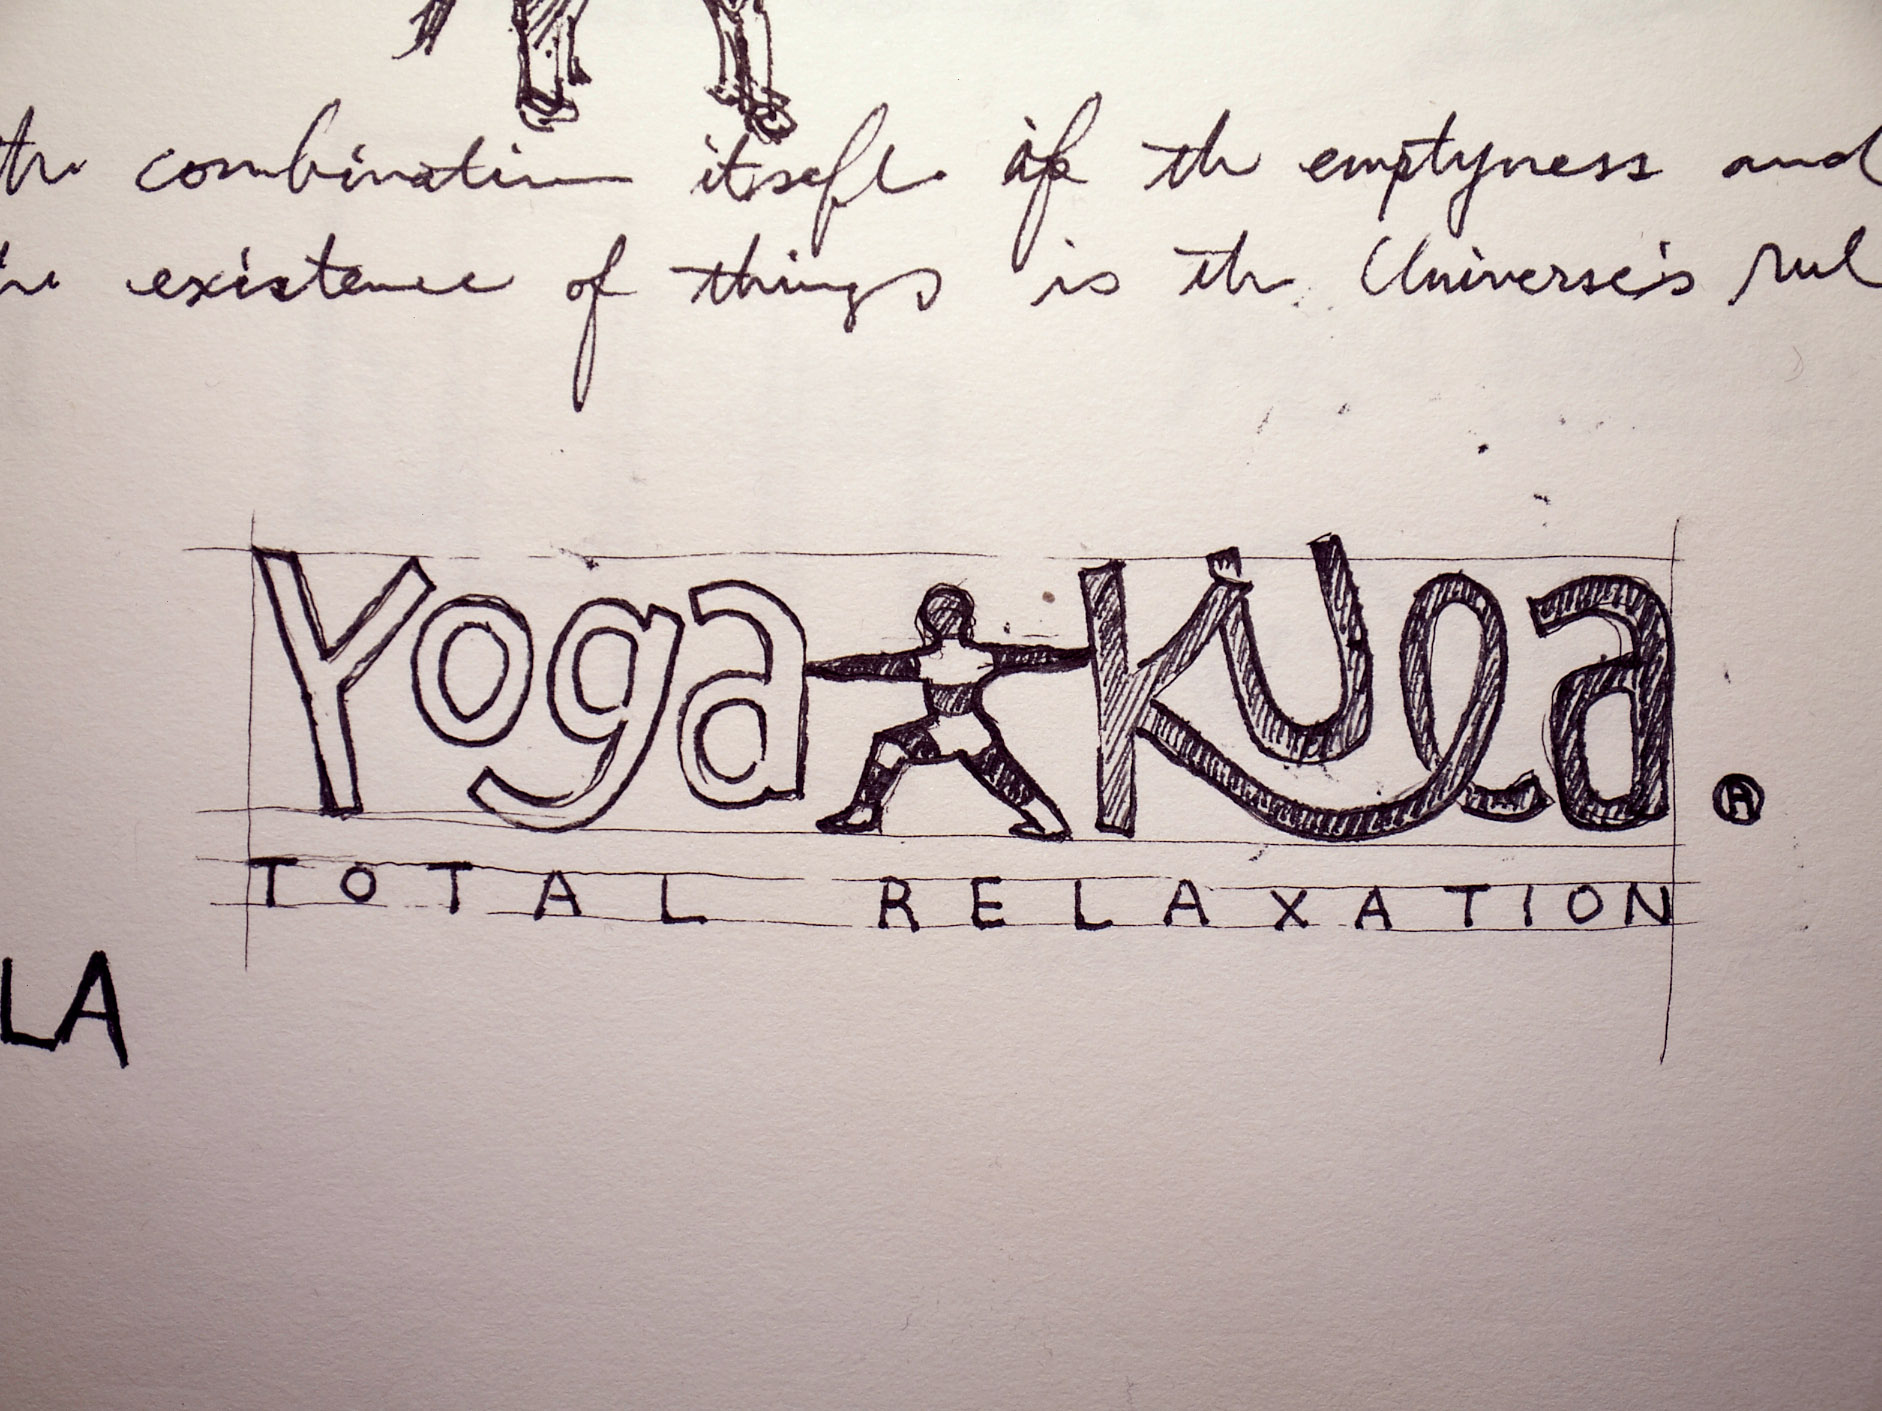 the combination itself of the emptyness and
the existence of things is the Universe's rul
Yoga Kula. ®
TOTAL RELAXATION
LA